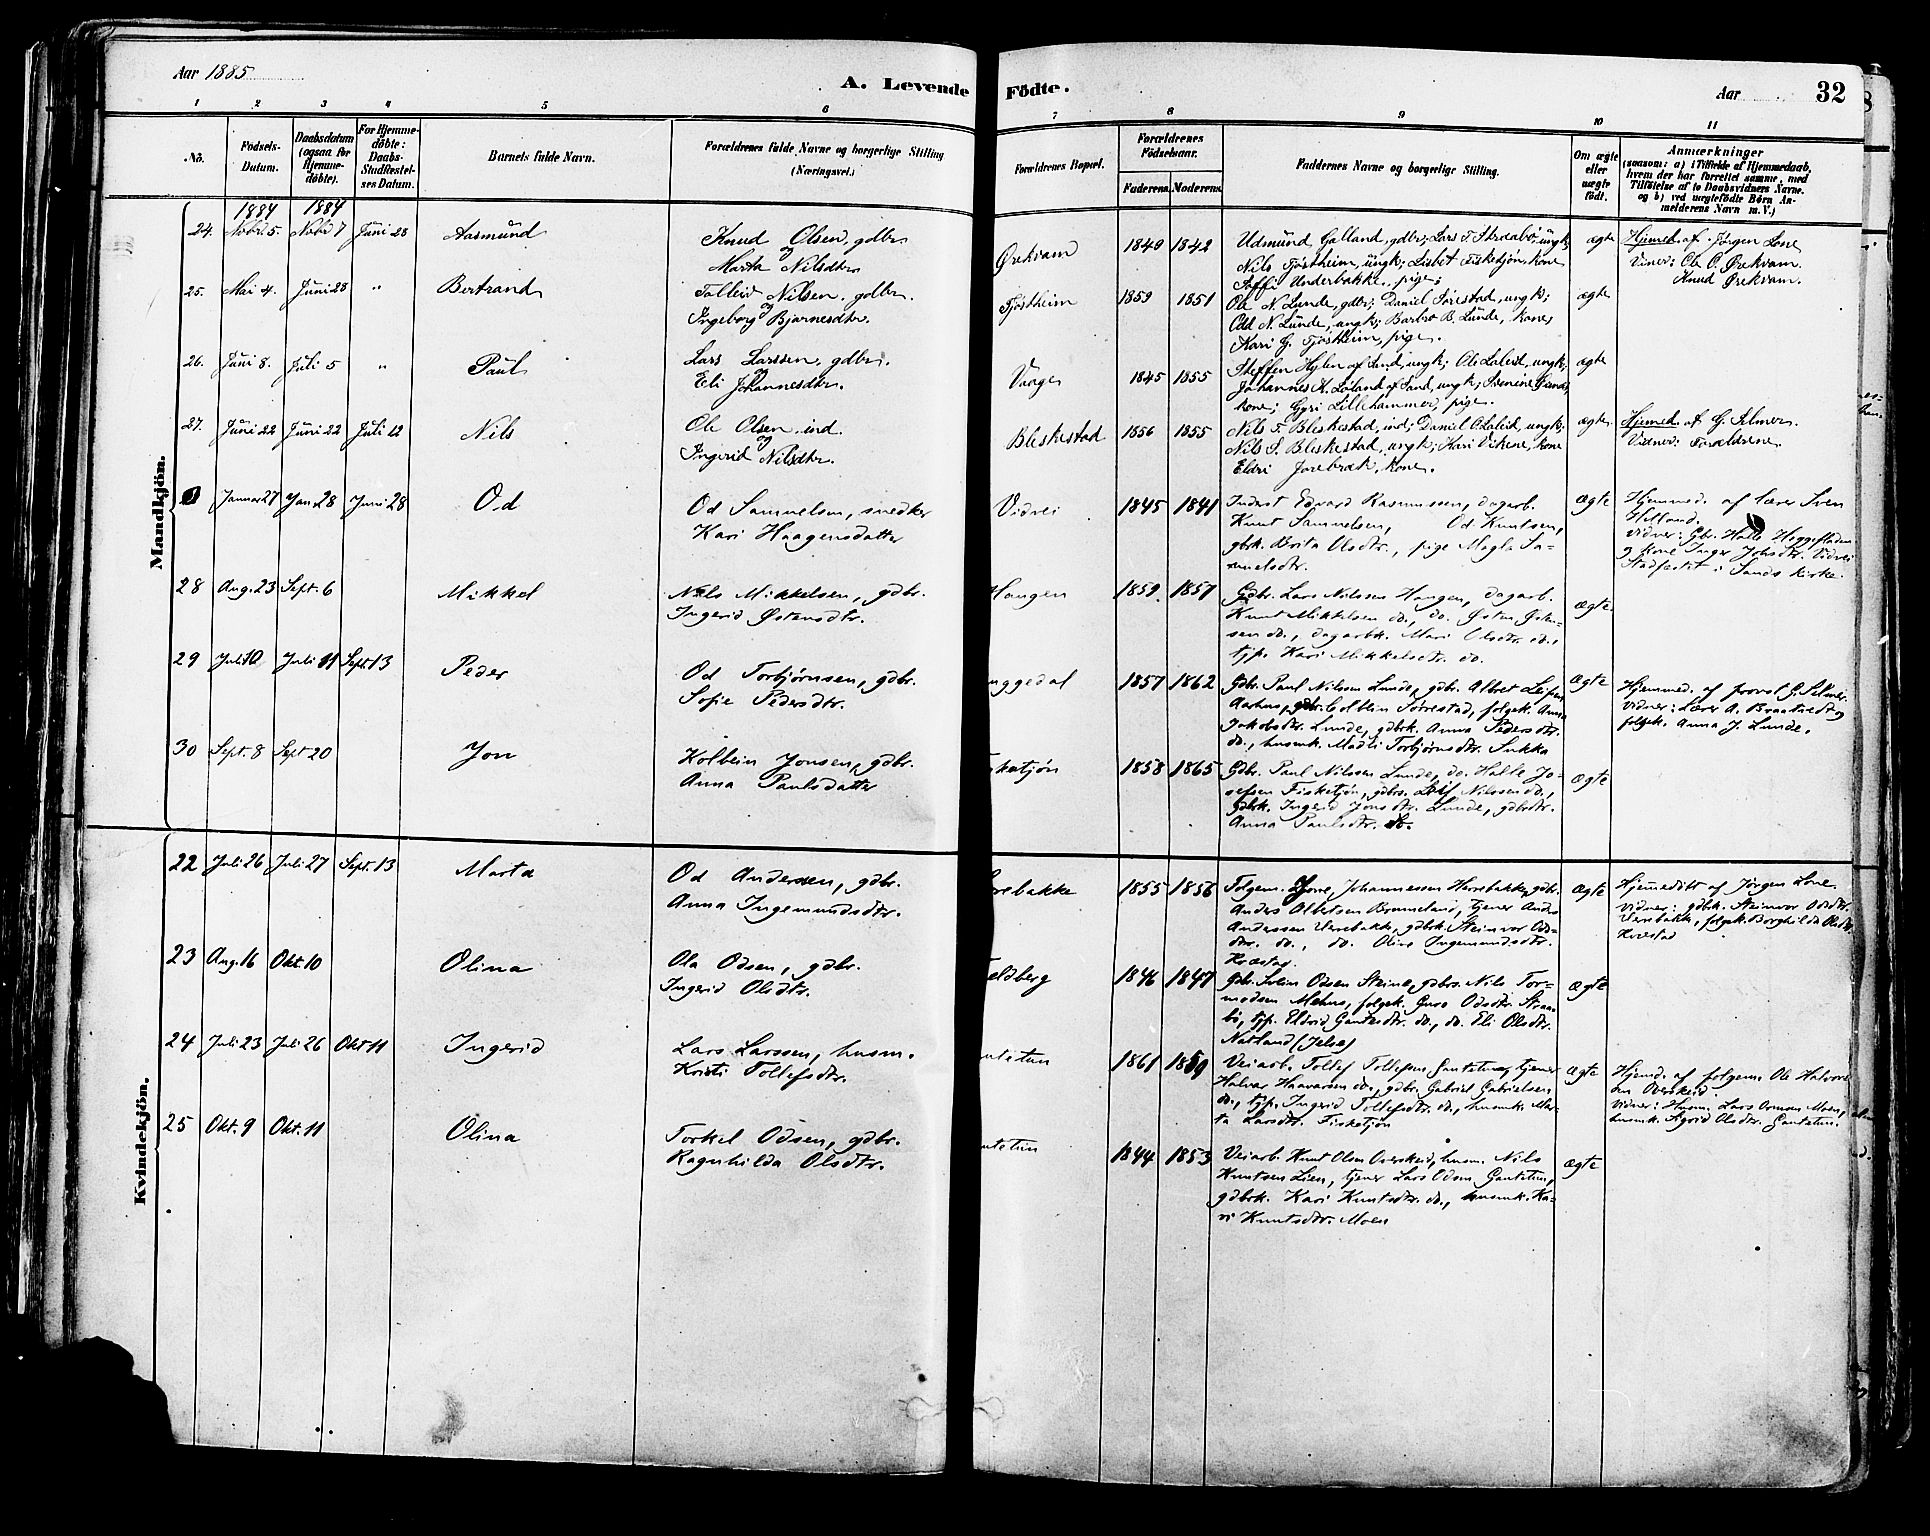 Aar 1885
A. Levende Födte.
Aar
32
1 2 3 4 5 6 7 8 9 10 11
No.
Födsels-Datum.
Daabsdatum (ogsaa for Hjemme-döbte).
For Hjemme-döbte: Daabs-Stadfæstel-ses Datum.
Barnets fulde Navn.
Forældrenes fulde Navne og borgerlige Stilling (Næringsvei.)
Forældrenes Bopæl.
Forældrenes Födselsaar.
Faderens. Moderens.
Faddernes Navne og borgerlige Stilling.
Om ægte eller uægte födt.
Anmærkninger
(saasom: a) i Tilfælde af Hjemmedaab,
hvem der har forrettet samme, med
Tilföielse af to Daabsvidners Navne.
og b) ved uægtefödte Börn An-
melderens Navn m. V.)
Mandkjön.
1884 1884
24. Novbr 5 Novbr 7 Juni 28 Aasmund
Knud Olsen, gdbr
og
Marta Nilsdtr
Ørekvam 1849 1842
Udmund Galland, gdbr; Lars T. Straabø, ungk;
Nils Tjøstheim, ungk; Lisbet Fisketjøn, kone
Soffi Underbakke, pige;
ægte
Hjemmed. af Jørgen Lone
Vidner: Ole O. Ørekvam.
Knud Ørekvam.
25. Mai 4. Juni 28 " Bertrand
Tolleiv Nilsen, gdbr.
og
Ingeborg Bjarnesdtr.
Tjøstheim 1859 1851
Ole N. Lunde, gdbr; Daniel Sørestad, ungk;
Odd N. Lunde, ungk; Barbro B. Lunde, kone;
Kari G. Tjøstheim, pige.
ægte
26. Juni 8. Juli 5 " Paul
Lars Larssen, gdbr.
og
Eli Johannesdtr.
Vaage 1845 1855
Steffen Hylen af Sand, ungk; Ole Laleid, ungk;
Johannes H. Løland af Sand, ungk;
kone; Gyri Lillehammer, pige.
ægte
27. Juni 22 Juni 22 Juli 12 Nils
Ole Olsen ind.
og
Ingerid Nilsdtr.
Bleskestad 1856 1855
Nils T. Bleskestad, ind; Daniel O Laleid, ungk;
Nils S. Bleskestad, ungk; Kari Vikene, kone
Eldri Jorebræk, kone.
ægte
Hjemmed. af G. Selmer.
Vidner: Forældrene.
Januar 27 Jan. 28 Juni 28 Od
Od Samuelsen, snedker
Kari Haagensdatter
Vidvei 1845 1841
Inderst Edvard Rasmussen, dagarb.
Knut Samuelsen, Od Knutsen,
gbrk. Brita Olsdtr., pige Magla Sa-
muelsdtr.
ægte
Hjemmed. af lærer Sven
Helland.
Vidner: Gbr. Halle Heggestaden
og kone Inger Johsdtr. Vidvei
Stadfæstet i Sands kirke.
28 Aug. 23 Sept. 6 Mikkel
Nils Mikkelsen, gdbr.
Ingerid Østensdtr.
Haugen 1859. 1857
Gdbr. Lars Nilssen Haugen, dagarb.
Knut Mikkelsen do., do. Østen Østen-
sen do., dagarbk. Mari Olsdtr. do.,
tjp. Kari Mikkelsdtr. do.
ægte
29 Juli 10 Juli 11 Sept. 13 Peder
Od Torbjørnsen, gdbr.
Sofie Pedersdtr.
uggedal 1857 1862
Gdbr. Paul Nilssen Lunde, gdbr. Albret Leifsen
Aarhus, gdbr. Colbein Sørrestad, folgek. Anna
Jakobsdtr. Lunde, gdbrk. Anna Pedersdtr.
do., husmk. Madli Torbjørnsdtr. Sukka
ægte
Hjemmed. af provst G. Selmer.
Vidner: Lærer A. Braatvedt og
folgek. Anna J. Lunde.
30 Sept. 8 Sept 20 Jon
Kolbein Jonsen, gdbr.
Anna Paulsdatter
sketjøn 1858 1865
Gdbr. Paul Nilssen Lunde, do. Halle Jo-
sefsen Fisketjøn, gdbrs. Leif Nilssen do.,
Gdbrk. Ingerid Jonsdtr. Lunde, gdbrdtr.
Anna Paulsdtr. do.
ægte
Kvindekjön.
22 Juli 26 Juli 27 Sept. 13 Marta
Od Andersen, gdbr.
Anna Ingemundsdtr.
rrebakke 1855 1856
Folgem. Sjove Johannessen Harebakke, gdbr.
Anders Albertsen Brommeland, tjener Anders
Anderssen Værebakke, gdbrk. Steinvor Ods-
dtr. do., do. Oline Ingemundsdtr.
Hræstad
ægte
Hjemmedøbt af Jørgen Lone
Vidner: gdbrk. Steinvor Odsdtr.
Værebakke, folgek. Borghilda Olsdtr.
Hræstad
23 Aug. 16 Okt. 10 Olina
Ola Odsen, gdbr.
Ingerid Olsdtr.
eldberg 1846 1847
Gdbr. Svein Odsen Steine, gdbrs. Nils Tor-
modsen Mehus, folgek. Guro Odsdtr. Straa-
bø, tjp. Eldrid Gautesdtr. do., do. Eli Olsdtr.
Natland (Jelse)
ægte
24 Juli 23 Juli 26 Okt 11 Ingerid
Lars Larssen, husm.
Kristi Tollefsdtr.
utetun 1861 1859
Veiarb. Tollef Tollefsen Gautetun, tjener
Halvar Haavarsen do., gdbr. Gabriel Gabrielsen
do., tjp. Ingerid Tollefsdtr. do., husmk. Mar-
ta Larsdtr. Fisketjøn
ægte
Hjemd. af folgem. Ole Halvor-
sen Overskeid.
Vidner: Husm. Lars Orman Moen,
husmk. Agrid Olsdtr. Gautetun.
25 Okt. 9 Okt. 11 Olina
Torkel Odsen, gdbr.
Ragnhilda Olsdtr.
utetun 1844 1853
Veiarb. Knut Olsen Overskeid, husm. Nils
Knutsen Lien, tjener Lars Odsen Gautetun,
gdbrk. Kari Knutsdtr. do., husmk. Ka-
ri Knutsdtr. Moen
ægte